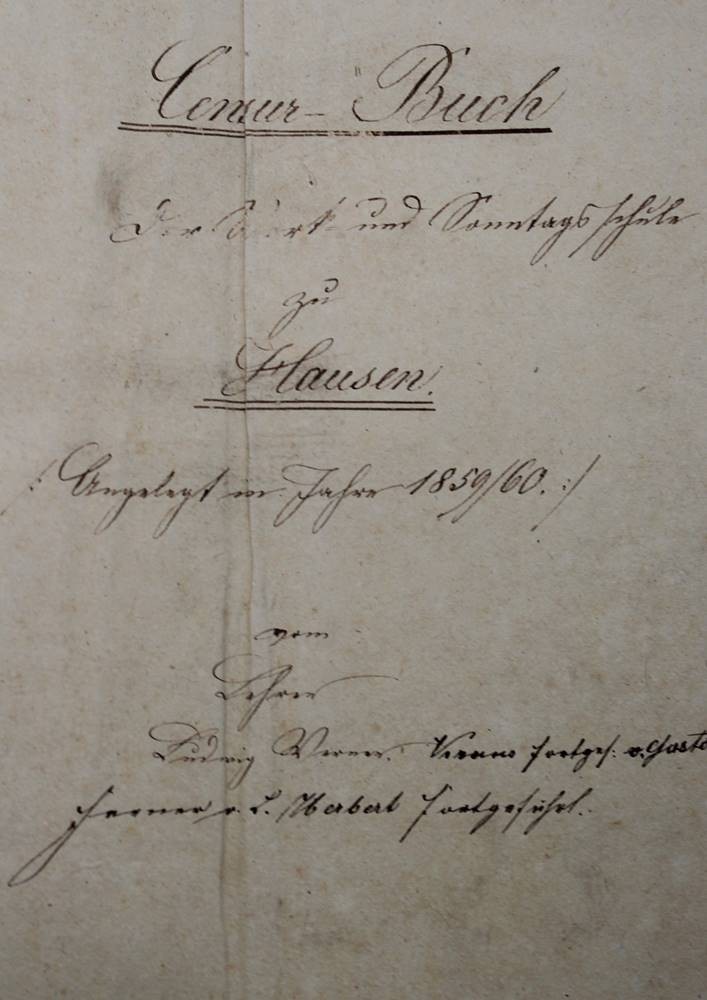 Censur- Buch
Der Werk- und Sonntagsschule
zu
Hausen.
/: Angelegt im Jahre 1859/60. :/
vom
Lehrer
Ludwig Werner. fortges. v.
Ferner v. L. Herbert fortgeführt.